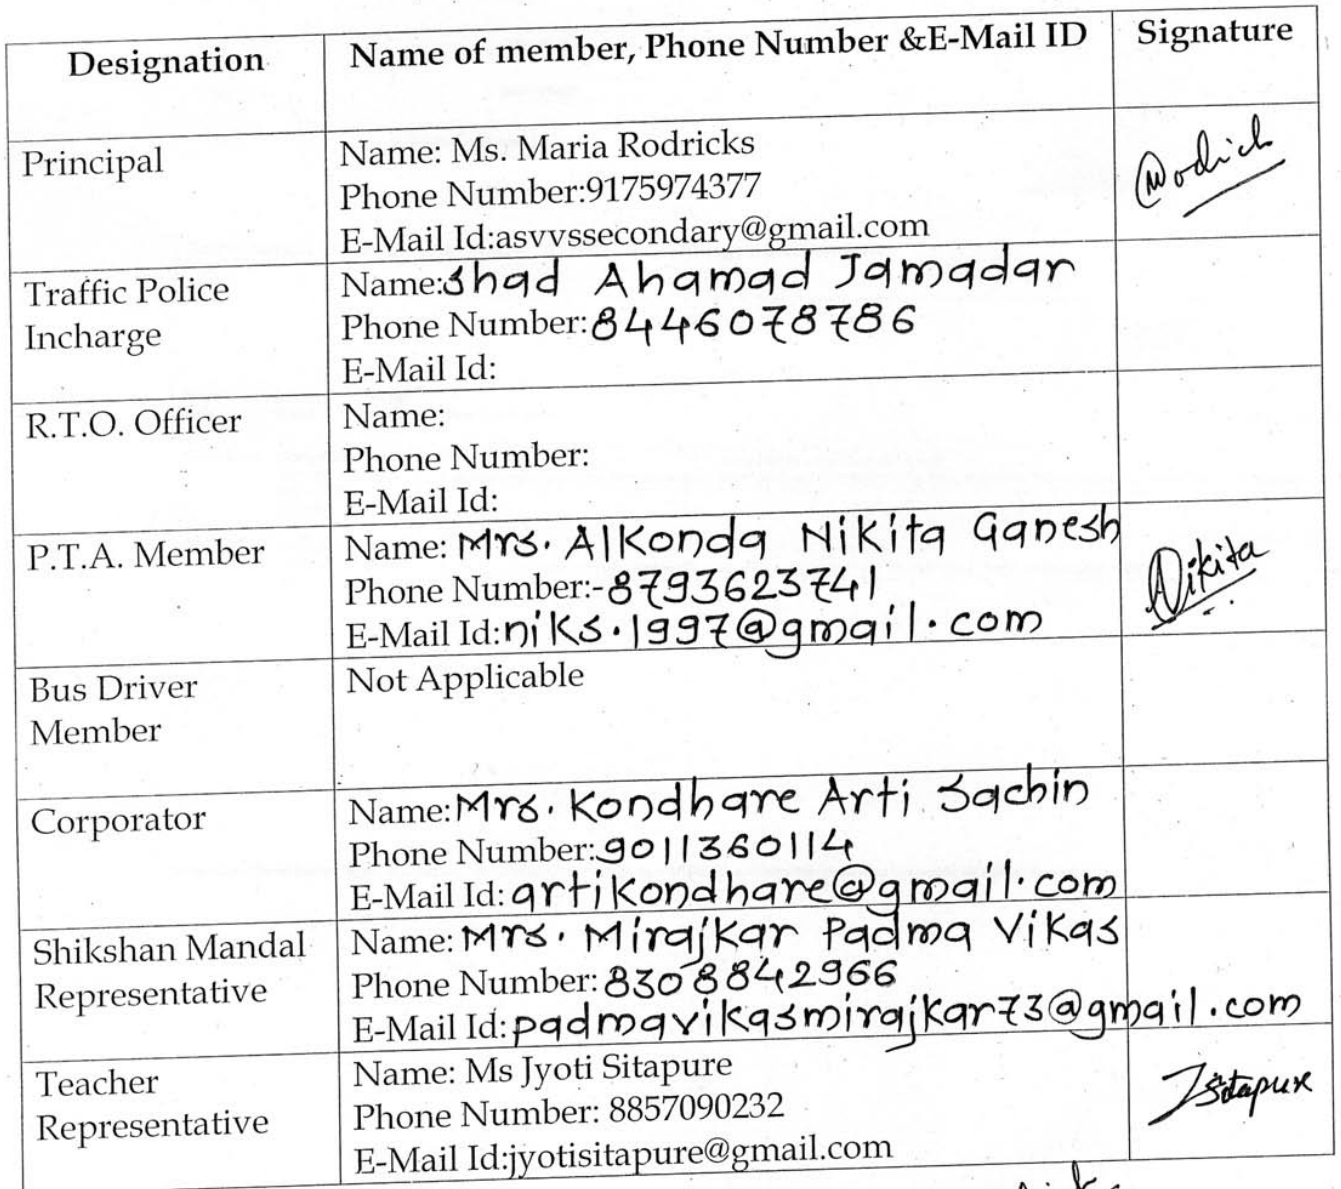 Designation Name of member, Phone Number &E-Mail ID Signature
Principal
Name: Ms. Maria Rodricks
Phone Number:9175974377
E-Mail Id:asvvssecondary@gmail.com
Rodricks
Traffic Police
Incharge
Name:Shad Ahamad Jamadar
Phone Number:8446078786
E-Mail Id:
R.T.O. Officer
Name:
Phone Number:
E-Mail Id:
P.T.A. Member
Name: Mrs. Alkonda Nikita Ganesh
Phone Number:-8793623741
E-Mail Id:niks.1997@gmail.com
Nikita
Bus Driver
Member
Not Applicable
Corporator
Name:Mrs. Kondhare Arti Sachin
Phone Number:9011360114
E-Mail Id:artikondhare@gmail.com
Shikshan Mandal
Representative
Name: Mrs. Mirajkar Padma Vikas
Phone Number:8308842966
E-Mail Id:padmavikasmirajkar73@gmail.com
Teacher
Representative
Name: Ms Jyoti Sitapure
Phone Number: 8857090232
E-Mail Id:jyotisitapure@gmail.com
JSitapure